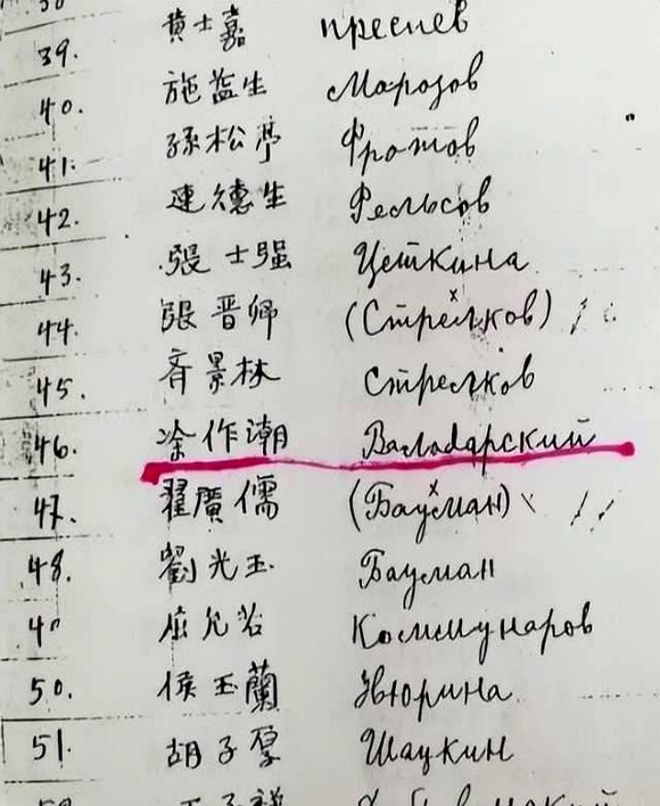 39. 黄士嘉 Преснев
40. 施益生 Марозов
41. 孫松亭 Фротов
42. 連德生 Рельсов
43. 張士强 Цеткина
44. 張晋卿 (Стрелков)
45. 斉景林 Стрелков
46. 凃作潮 Валадарский
47. 翟廣儒 (Бауман)
48. 劉光玉 Бауман
屈允若 Коммунаров
50. 侯玉蘭 Звюрина
51. 胡子厚 Шаукин